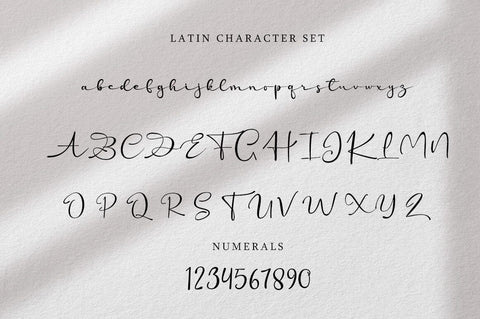 LATIN CHARACTER SET
abcdefghijklmnopqrstuvwxyz
ABCDEFGHIJKLMN
OPQRSTUVWXYZ
NUMERALS
1234567890